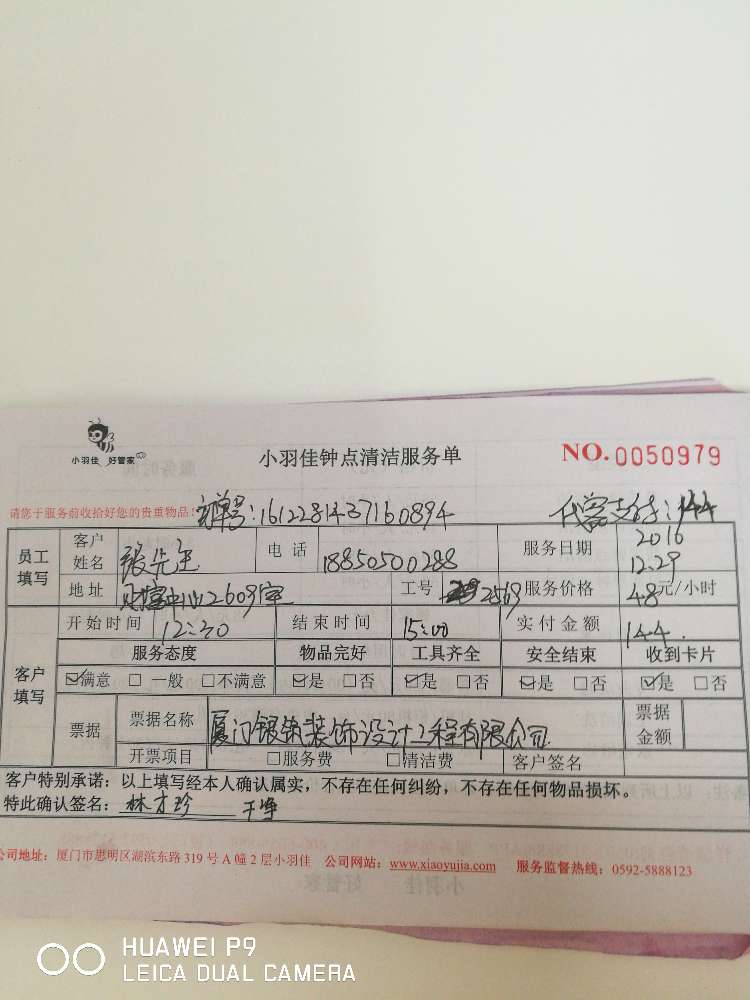 小羽佳 好管家
小羽佳钟点清洁服务单
NO.0050979
请您于服务前收拾好您的贵重物品! 单号:1612281437160894 代客支付:144
员工填写 客户姓名 张先生 电话 18850500288 服务日期 2016 12.29
地址 财富中心2609室 工号 2569 服务价格 48元/小时
客户填写 开始时间 12:30 结束时间 15:00 实付金额 144.
服务态度 物品完好 工具齐全 安全结束 收到卡片
☑满意 □一般 □不满意 ☑是 □否 ☑是 □否 ☑是 □否 ☑是 □否
票据 票据名称 厦门银筑装饰设计工程有限公司 票据金额
开票项目 □服务费 □清洁费 客户签名
客户特别承诺:以上填写经本人确认属实,不存在任何纠纷,不存在任何物品损坏。
特此确认签名: 林才珍 干净
公司地址:厦门市思明区湖滨东路 319 号 A 幢 2 层小羽佳 公司网站:www.xiaoyujia.com 服务监督热线:0592-5888123
HUAWEI P9
LEICA DUAL CAMERA